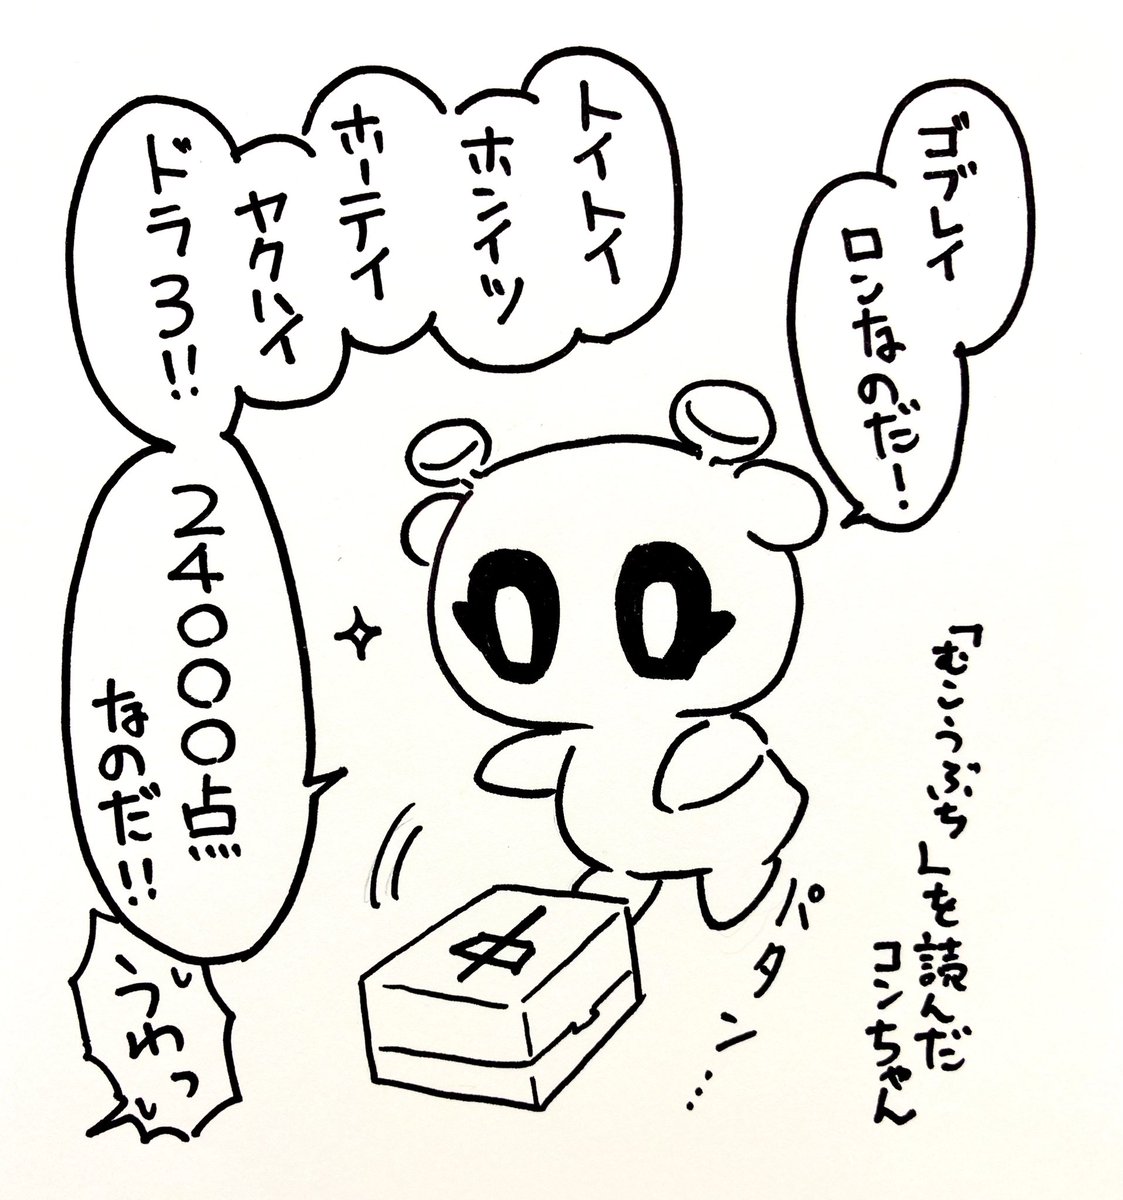 ゴブレイ
ロンなのだー!
トイトイ
ホンイツ
ホーテイ
ヤクハイ
ドラ3!!
24000点
なのだ!!
うわっ
中
パタン…
「むこうぶち」を読んだ
コンちゃん